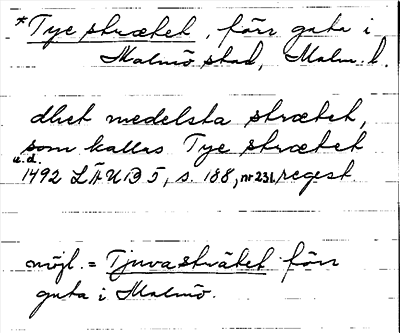 *Tye strætet, förr gata i
Malmö stad, Malm. l.
dhet medelsta strætet,
som kallas Tye strætet
u.d.
1492 LÄUB 5, s. 188, nr 231, regest.
möjl. = Tjuvasträtet förr
gata i Malmö.